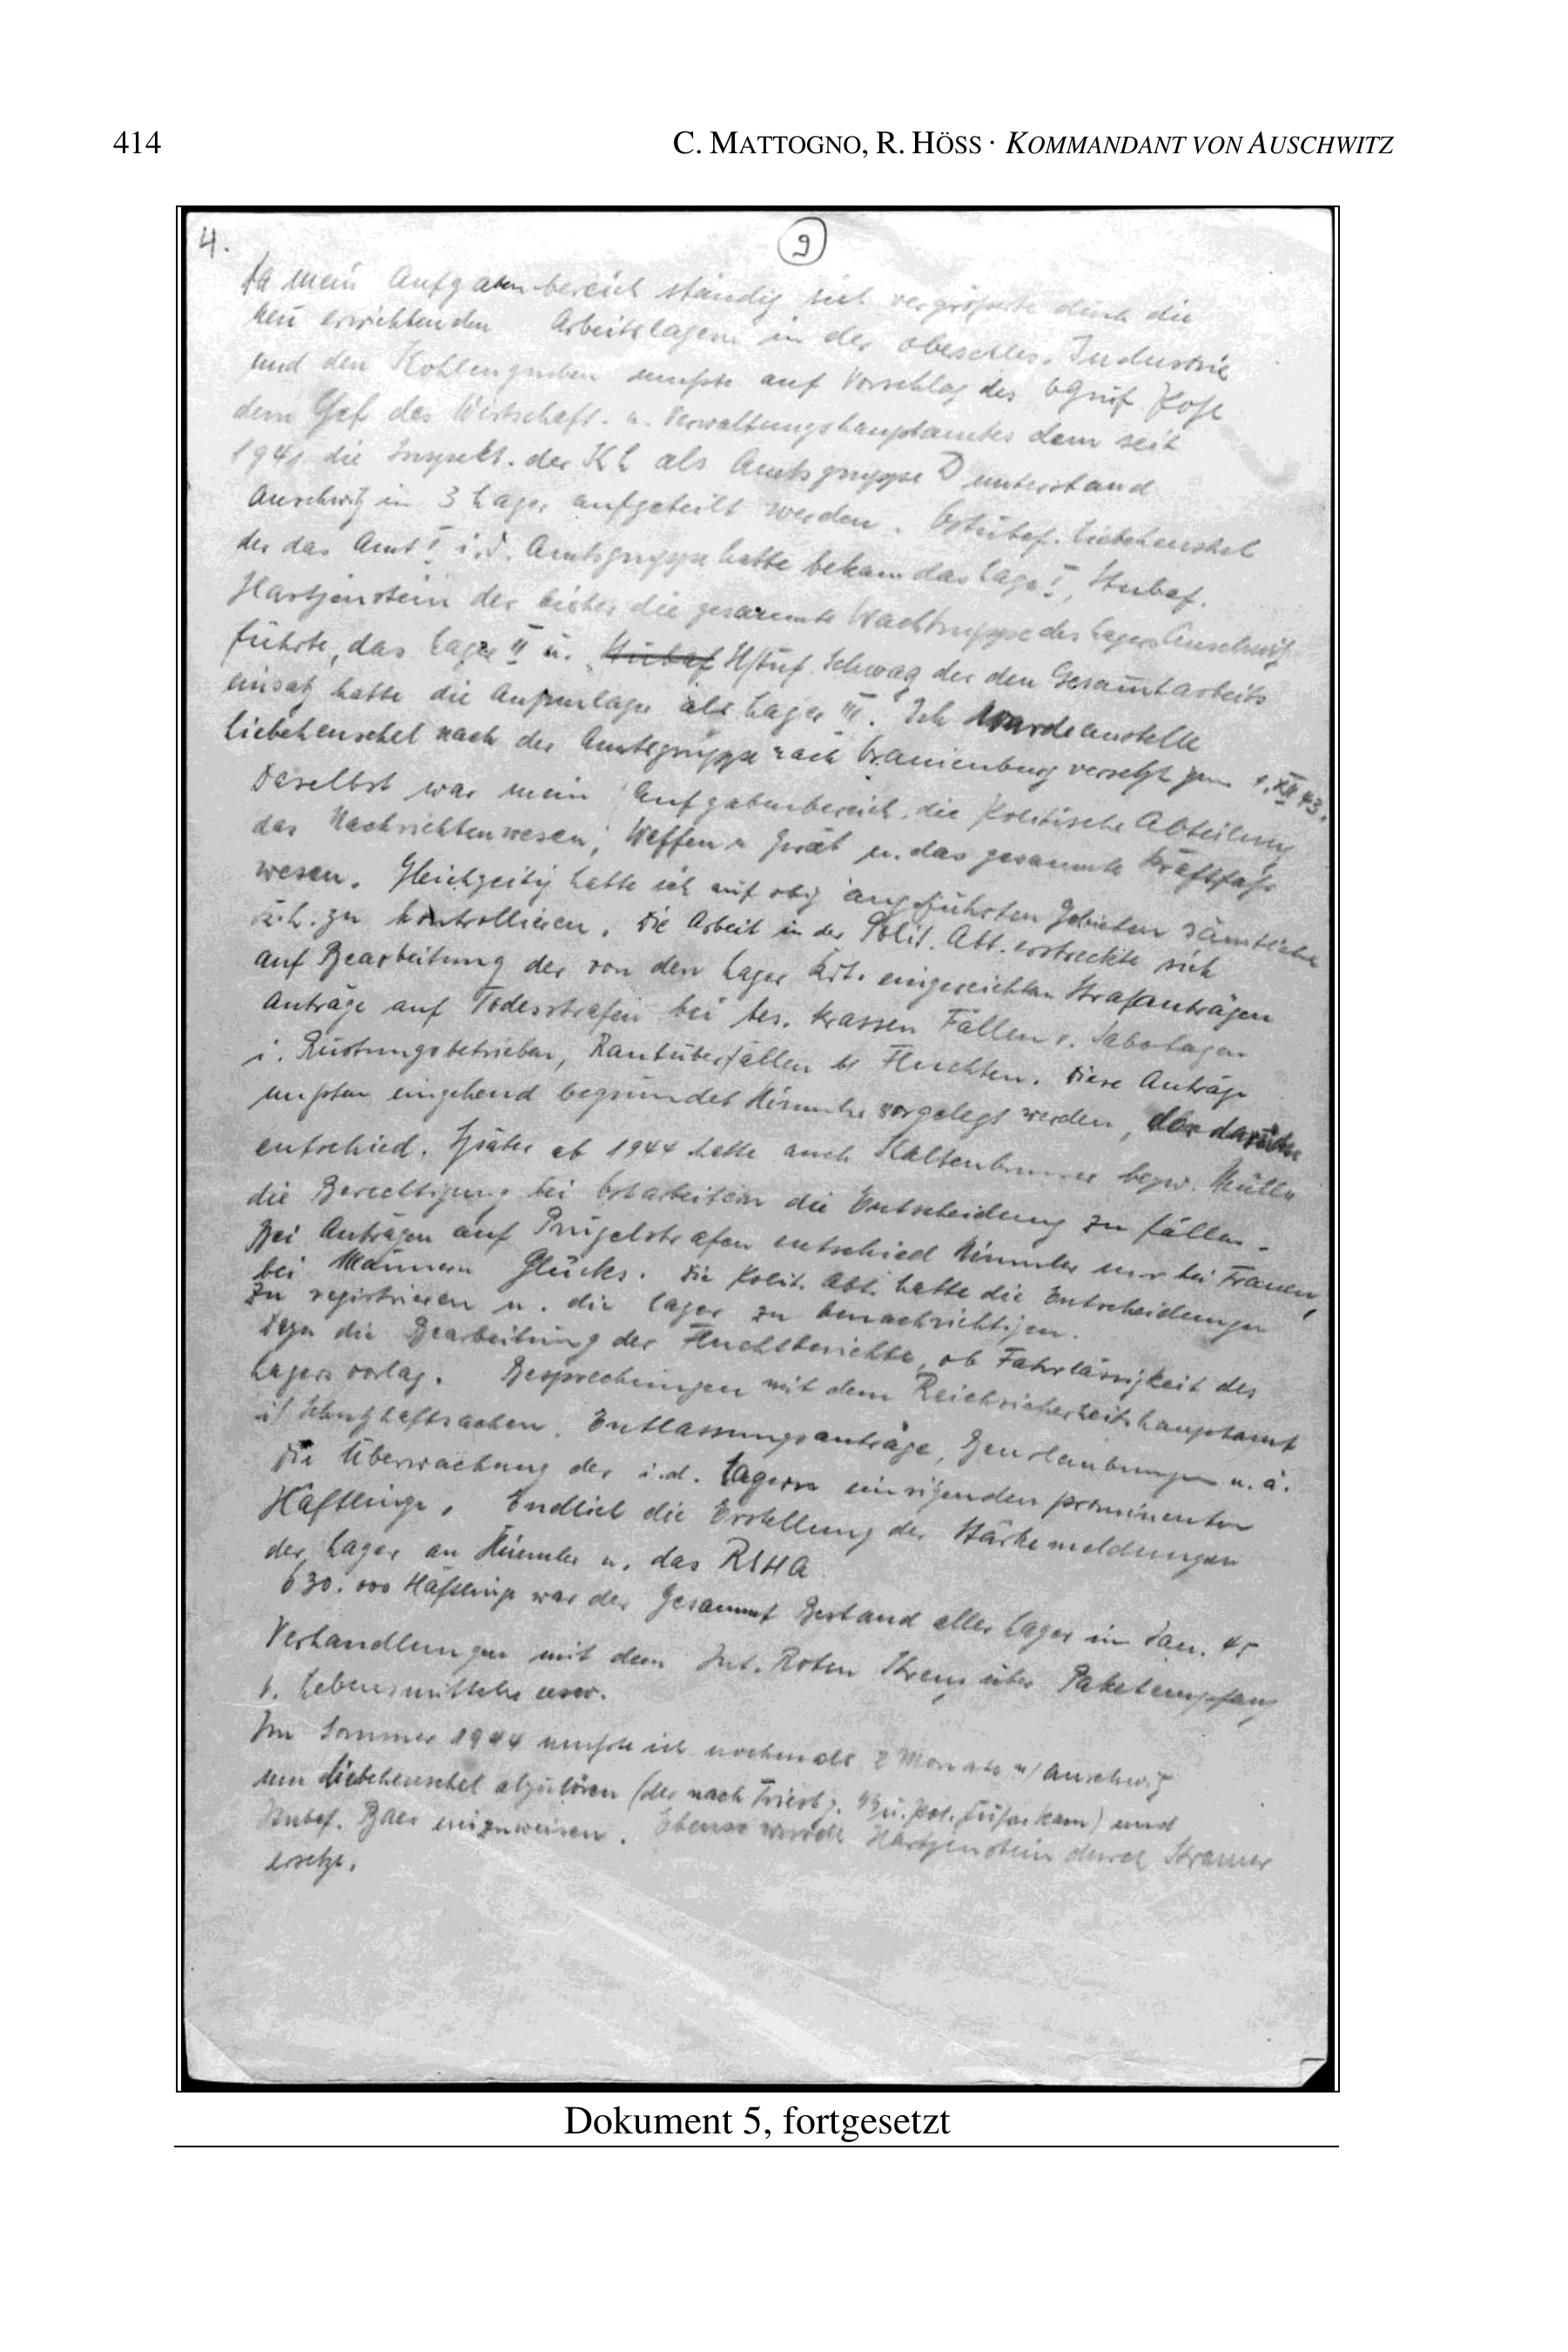 414
C. MATTOGNO, R. HÖSS · KOMMANDANT VON AUSCHWITZ
4.
9
Da mein Aufgabenbereich ständig sich vergrößerte durch die
neu errichtenden Arbeitslagern in der oberschles. Industrie
und den Kohlengruben mußte auf Vorschlag des OGruf Pohl
dem Chef des Wirtschaft. u. Verwaltungshauptamtes dem seit
die Inspekt. der KL als Amtsgruppe D unterstand
Auschwitz in 3 Lager aufgeteilt werden. Ostubaf. Liebehenschel
der das Amt I i.d. Amtsgruppe hatte bekam das Lager I, Stubaf.
Hartjenstein der bisher die gesammte Wachtruppe des Lagers Auschwitz
führte, das Lager II u. Stubaf H/Stuf. Schwarz der den Gesamtarbeits
einsatz hatte die Außenlager als Lager III. Ich wurde anstelle
Liebehenschel nach der Amtsgruppe nach Oranienburg versetzt zum 1.XII 43.
Daselbst war mein Aufgabenbereich, die Politische Abteilung
das Nachrichtenwesen, Waffen u Gerät u. das gesammte Kraftfahr
wesen. Gleichzeitig hatte ich auf obig angeführten Gebieten sämtliche
zu kontrollieren. Die Arbeit in der Polit. Abt. erstreckte sich
auf Bearbeitung der von den Lager Kdt. eingereichten Strafanträgen
Anträge auf Todesstrafen bei bes. krassen Fällen v. Sabotagen
i. Rüstungsbetrieben, Raubüberfällen b. Fluchten. Diese Anträge
mußten eingehend begründet Himmler vorgelegt werden, der darüber
entschied. Später ab 1944 hatte auch Kaltenbrunner bezw. Müller
die Berechtigung bei Ostarbeitern die Entscheidung zu fällen.
Bei Anträgen auf Prügelstrafen entschied Himmler nur bei Frauen,
bei Männern Glücks. Die Polit. Abt. hatte die Entscheidungen
zu registrieren u. die Lager zu benachrichtigen.
Dazu die Bearbeitung der Fluchtberichte, ob Fahrlässigkeit des
Lagers vorlag. Besprechungen mit dem Reichsicherheitshauptamt
i/ Schutzhaftsachen. Entlassungsanträge, Beurlaubungen u. ä.
Die Überwachung der i.d. Lagern einsitzenden prominenten
Häftlinge. Endlich die Erstellung der Stärkemeldungen
der Lager an Himmler u. das RSHA
630.000 Häftlinge war der Gesammt Bestand aller Lager im Jan. 45
Verhandlungen mit dem Int. Roten Kreuz über Paketempfang
v. Lebensmitteln usw.
Im Sommer 1944 mußte ich nochmals 2 Monate n/ Auschwitz
um Liebehenschel abzulösen (der nach Triest z. SS u. Pol. Füh. kam) und
Stubaf. Baer einzuweisen. Ebenso wurde Hartjenstein durch Kramer
ersetzt.
Dokument 5, fortgesetzt